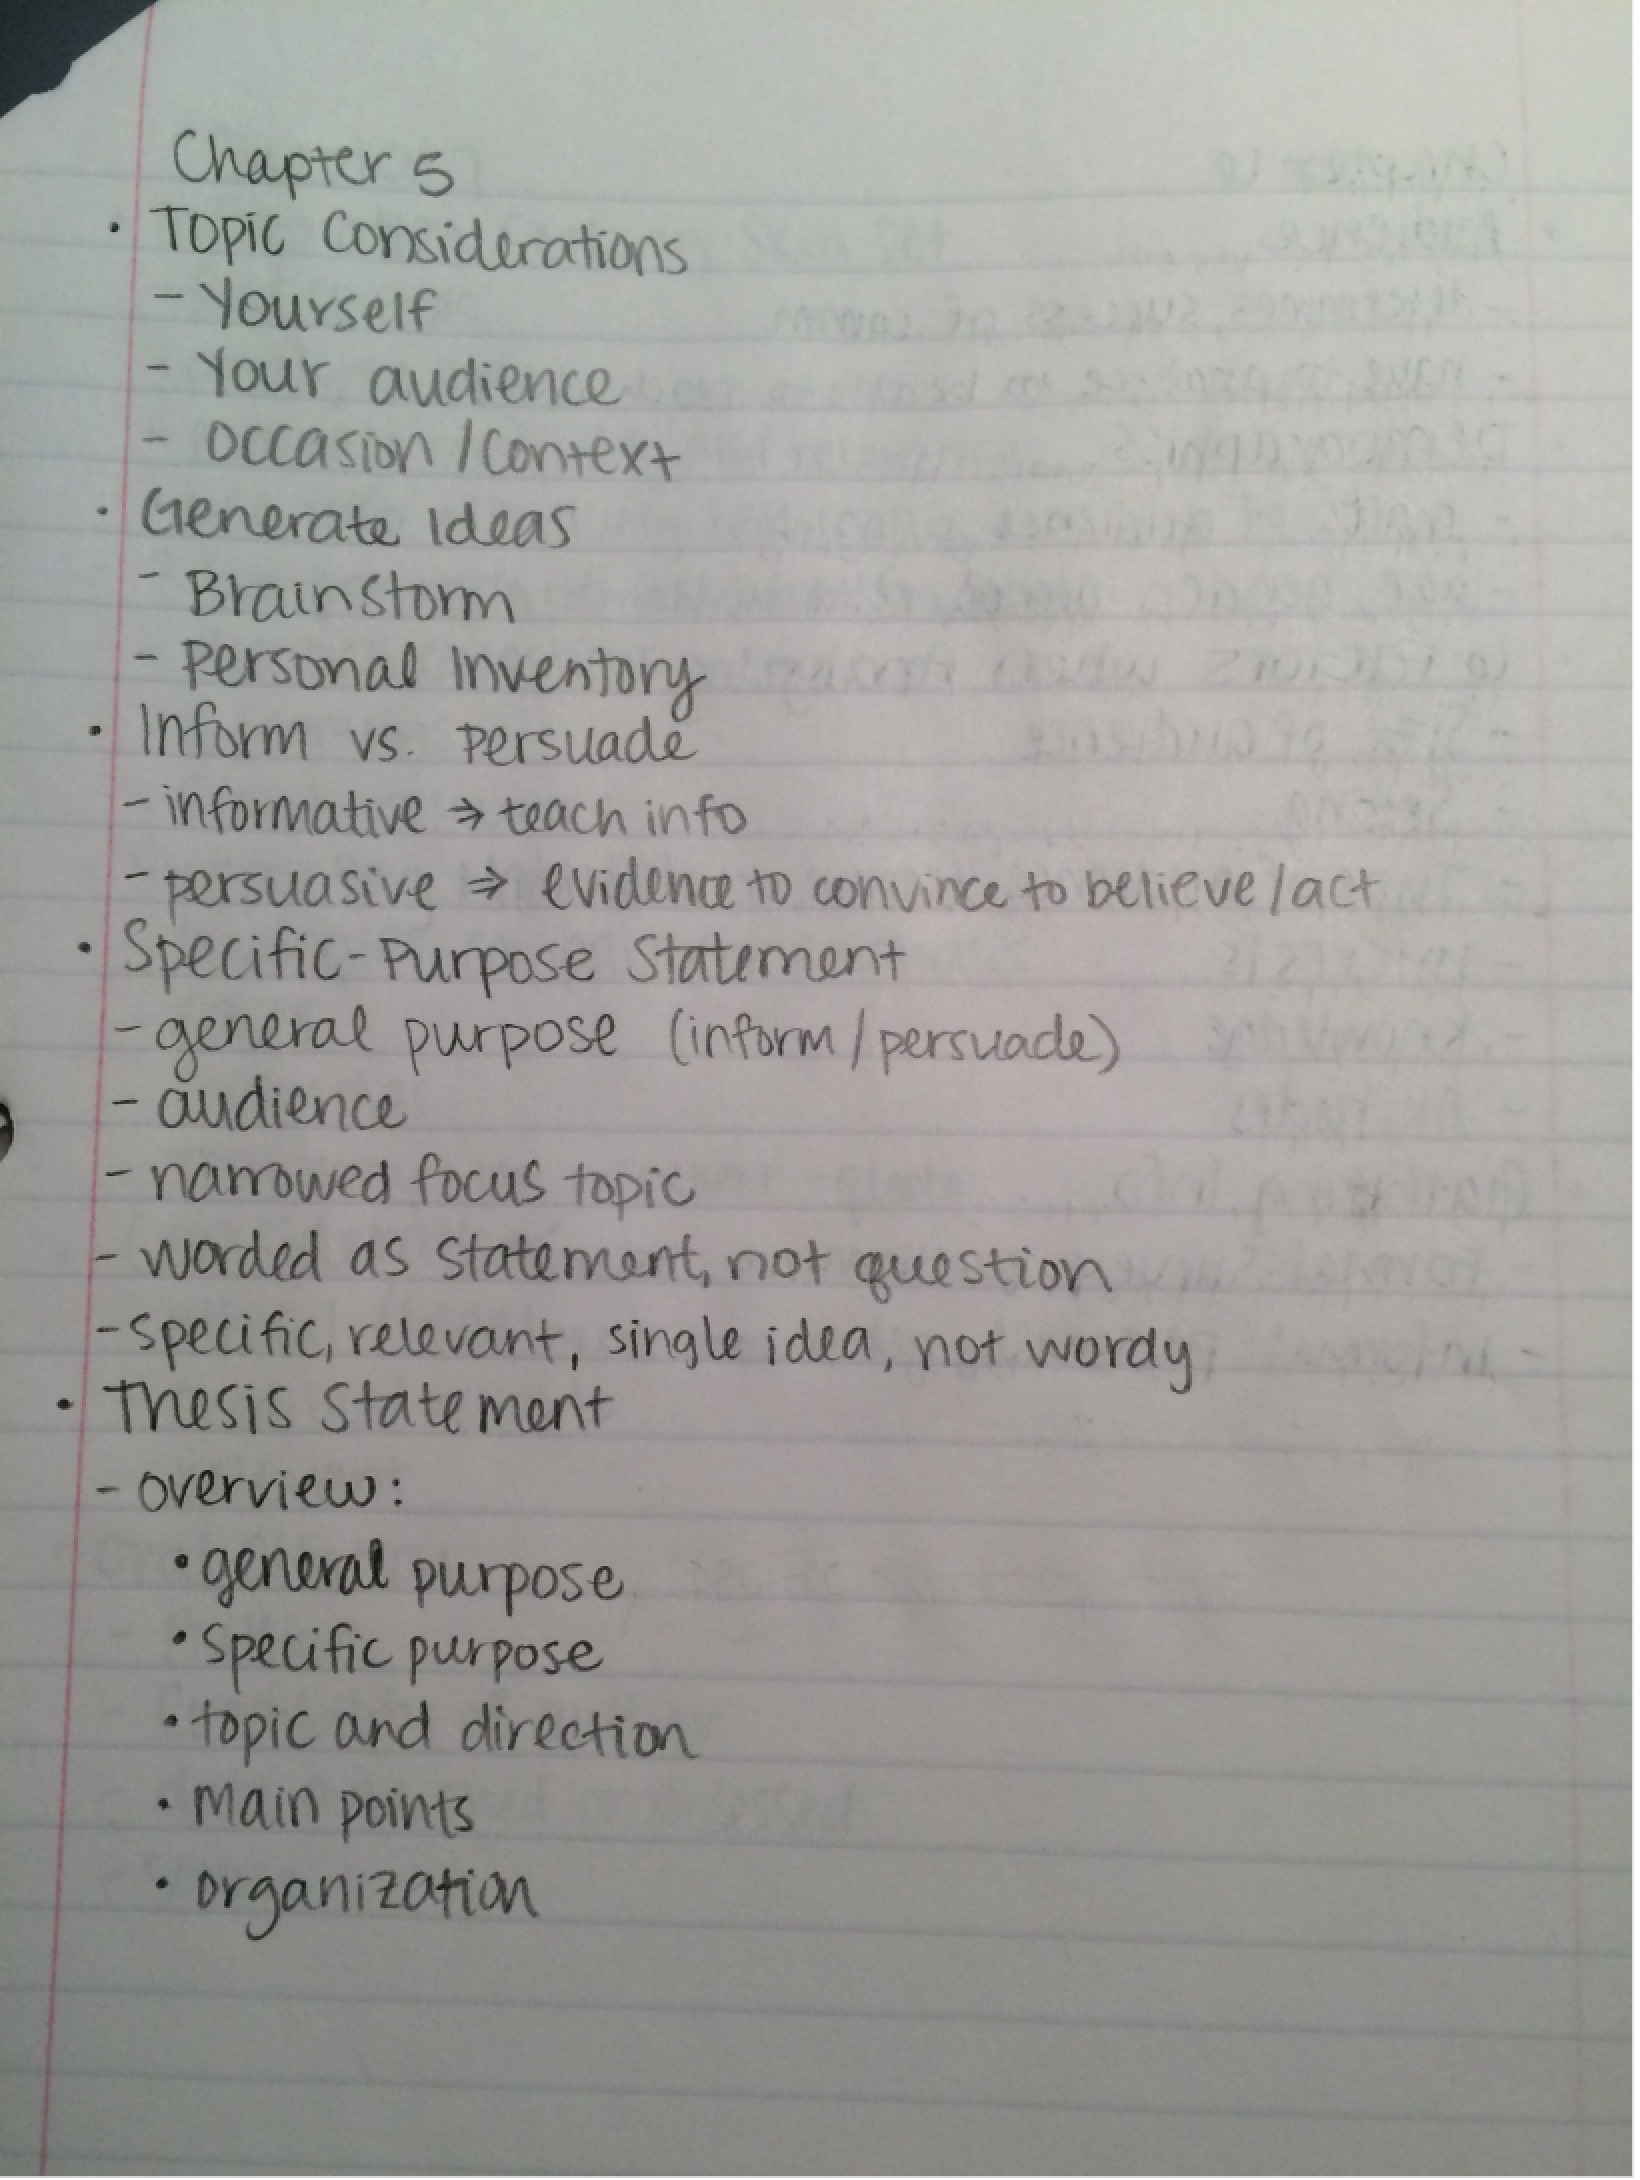 Chapter 5
· Topic Considerations
- Yourself
- Your audience
- Occasion / Context
· Generate Ideas
- Brainstorm
- Personal Inventory
· Inform vs. Persuade
- informative ⇒ teach info
- persuasive ⇒ evidence to convince to believe / act
· Specific-Purpose Statement
- general purpose (inform / persuade)
- audience
- narrowed focus topic
- worded as statement, not question
- specific, relevant, single idea, not wordy
· Thesis Statement
- overview:
• general purpose
• specific purpose
• topic and direction
• main points
• organization